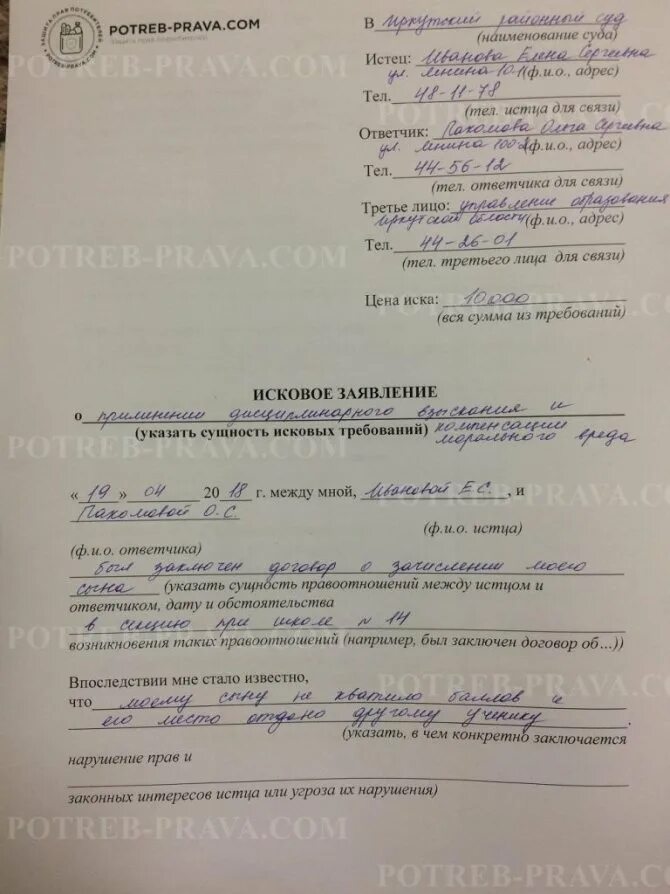 ЗАЩИТА ПРАВ ПОТРЕБИТЕЛЕЙ
POTREB-PRAVA.COM
POTREB-PRAVA.COM
ЗАЩИТА ПРАВ ПОТРЕБИТЕЛЕЙ
В Иркутский районный суд
(наименование суда)
Истец: Иванова Елена Сергеевна
ул. Ленина 10-1 (ф.и.о., адрес)
Тел. 48-11-78
(тел. истца для связи)
Ответчик: Пахомова Ольга Сергеевна
ул. Ленина 100-2 (ф.и.о., адрес)
Тел. 44-56-12
(тел. ответчика для связи)
Третье лицо: управление образования
Иркутской области (ф.и.о., адрес)
Тел. 44-26-01
(тел. третьего лица для связи)
Цена иска: 10000
(вся сумма из требований)
ИСКОВОЕ ЗАЯВЛЕНИЕ
о применении дисциплинарного взыскания и
(указать сущность исковых требований) компенсации
морального вреда
« 19 » 04 20 18 г. между мной, Ивановой Е.С. , и
Пахомовой О.С.
(ф.и.о. истца)
(ф.и.о. ответчика)
был заключен договор о зачислении моего
сына (указать сущность правоотношений между истцом и
ответчиком, дату и обстоятельства
в секцию при школе № 14
возникновения таких правоотношений (например, был заключен договор об...))
Впоследствии мне стало известно,
что моему сыну не хватило баллов и
его место отдано другому ученику
(указать, в чем конкретно заключается
нарушение прав и
законных интересов истца или угроза их нарушения)
POTREB-PRAVA.COM
POTREB-PRAVA.COM
POTREB-PRAVA.COM
POTREB-PRAVA.COM
POTREB-PRAVA.COM
POTREB-PRAVA.COM
POTREB-PRAVA.COM
POTREB-PRAVA.COM
POTREB-PRAVA.COM
POTREB-PRAVA.COM